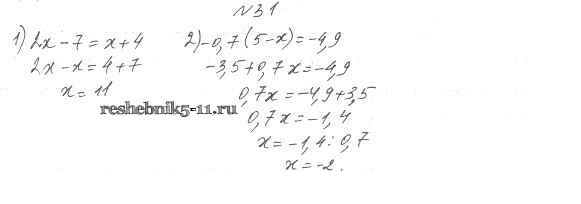 №31
1) 2x-7=x+4
2x-x=4+7
x=11
2) -0,7(5-x)=-4,9
-3,5+0,7x=-4,9
0,7x=-4,9+3,5
0,7x=-1,4
x=-1,4:0,7
x=-2.
reshebnik5-11.ru